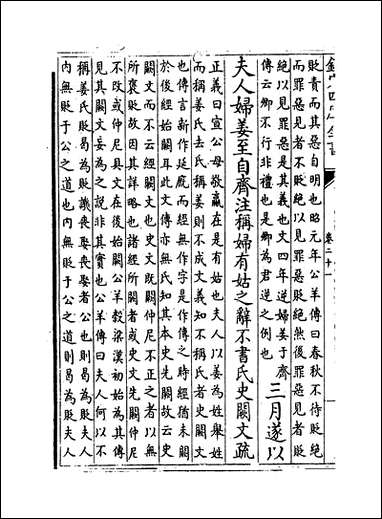 欽定四庫全書
卷二十一
貶責而其惡自明也昭元年公羊傳曰春秋不待貶絶
而罪惡見者不貶絶以見罪惡貶絶然後罪惡見者貶
絶以見罪惡是其義也文四年逆婦姜于齊
傳云卿不行非禮也是卿為君逆之例也
三月遂以
夫人婦姜至自齊注稱婦有姑之辭不書氏史闕文疏
正義曰宣公母敬嬴在是有姑也夫人以姜為姓舉姓
而稱姜氏去氏稱姜則不成文義知不稱氏者史闕文
也傳言新作延廐而經無作字是作傳之時經猶未闕
於後經始闕耳此文傳亦無氏知其本史先闕故云史
闕文而不云經闕文也史文既闕仲尼不正之者以無
所褒貶故因其詳略也諸經所闕者或史文先闕仲尼
不改或仲尼具文在後始闕公羊榖梁漢初始為其傳
見其闕文妄為之説非其實也公羊傳曰夫人何以不
稱姜氏貶曷為貶譏喪娶喪娶者公也則曷為貶夫人
内無貶于公之道也内無貶于公之道則曷為貶夫人